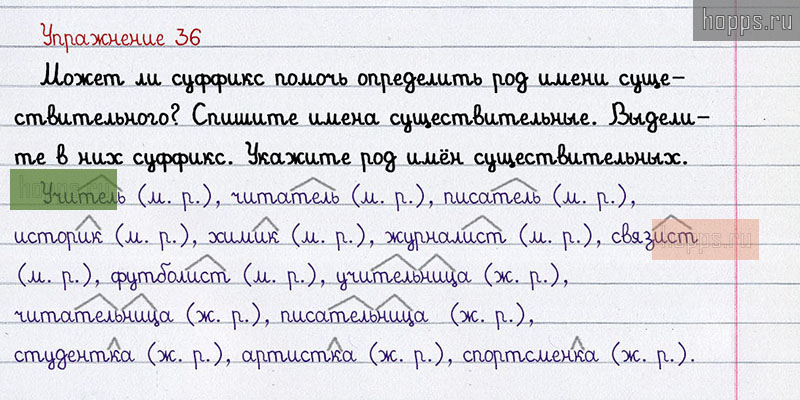 hopps.ru
Упражнение 36
Может ли суффикс помочь определить род имени суще-
ствительного? Спишите имена существительные. Выдели-
те в них суффикс. Укажите род имён существительных.
Учитель (м. р.), читатель (м. р.), писатель (м. р.),
историк (м. р.), химик (м. р.), журналист (м. р.), связист
(м. р.), футболист (м. р.), учительница (ж. р.),
читательница (ж. р.), писательница (ж. р.),
студентка (ж. р.), артистка (ж. р.), спортсменка (ж. р.).
hopps.ru
hopps.ru